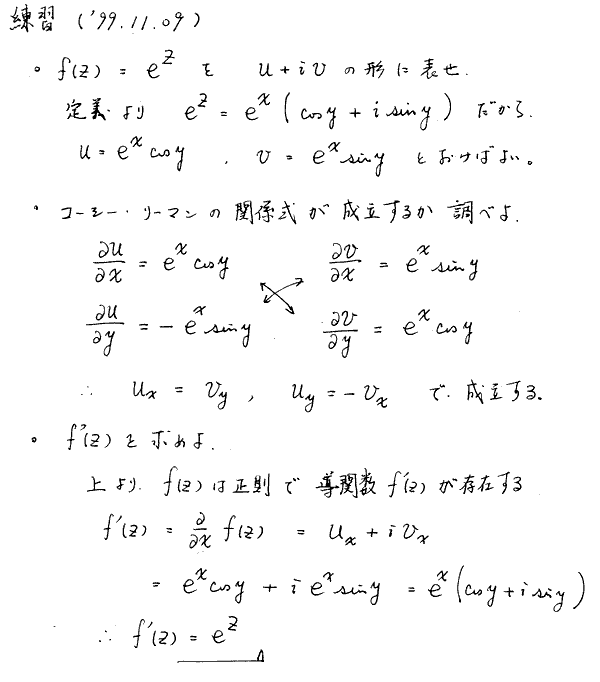 練習 ('99.11.09)
。f(z) = e^z を u + iv の形に表せ.
定義より e^z = e^x (cos y + i sin y) だから.
u = e^x cos y , v = e^x sin y とおけばよい。
・コーシー・リーマンの関係式が成立するか調べよ.
∂u/∂x = e^x cos y ∂v/∂x = e^x sin y
∂u/∂y = - e^x sin y ∂v/∂y = e^x cos y
∴ u_x = v_y , u_y = - v_x で成立する.
。f'(z) を求めよ.
上より. f(z) は正則で 導関数 f'(z) が存在する
f'(z) = ∂/∂x f(z) = u_x + i v_x
= e^x cos y + i e^x sin y = e^x (cos y + i sin y)
∴ f'(z) = e^z